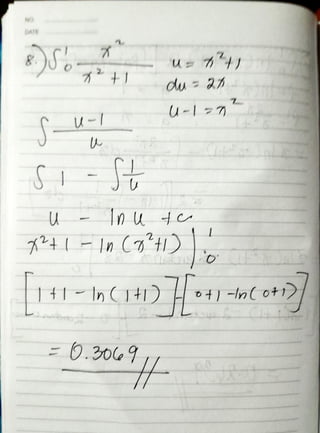 NO.
DATE
8.) ∫₀¹ x² / x² + 1
u = x² + 1
du = 2x
u - 1 = x²
∫ u - 1 / u
∫ 1 - ∫ 1/u
u - ln u + c
x² + 1 - ln (x² + 1) |₀¹
[1 + 1 - ln (1 + 1)] - [0 + 1 - ln (0 + 1)]
= 0.3069 //